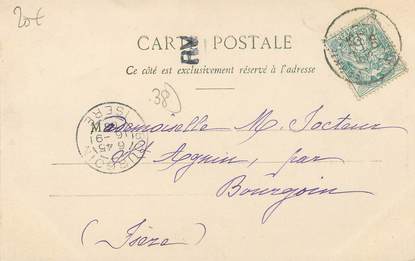 20€
CARTE POSTALE
Ce côté est exclusivement réservé à l'adresse
38
Mademoiselle M. Jocteur
St Agnin, par
Bourgoin
(Isère)
BOURGOIN
ISERE
6 45
16 - 9